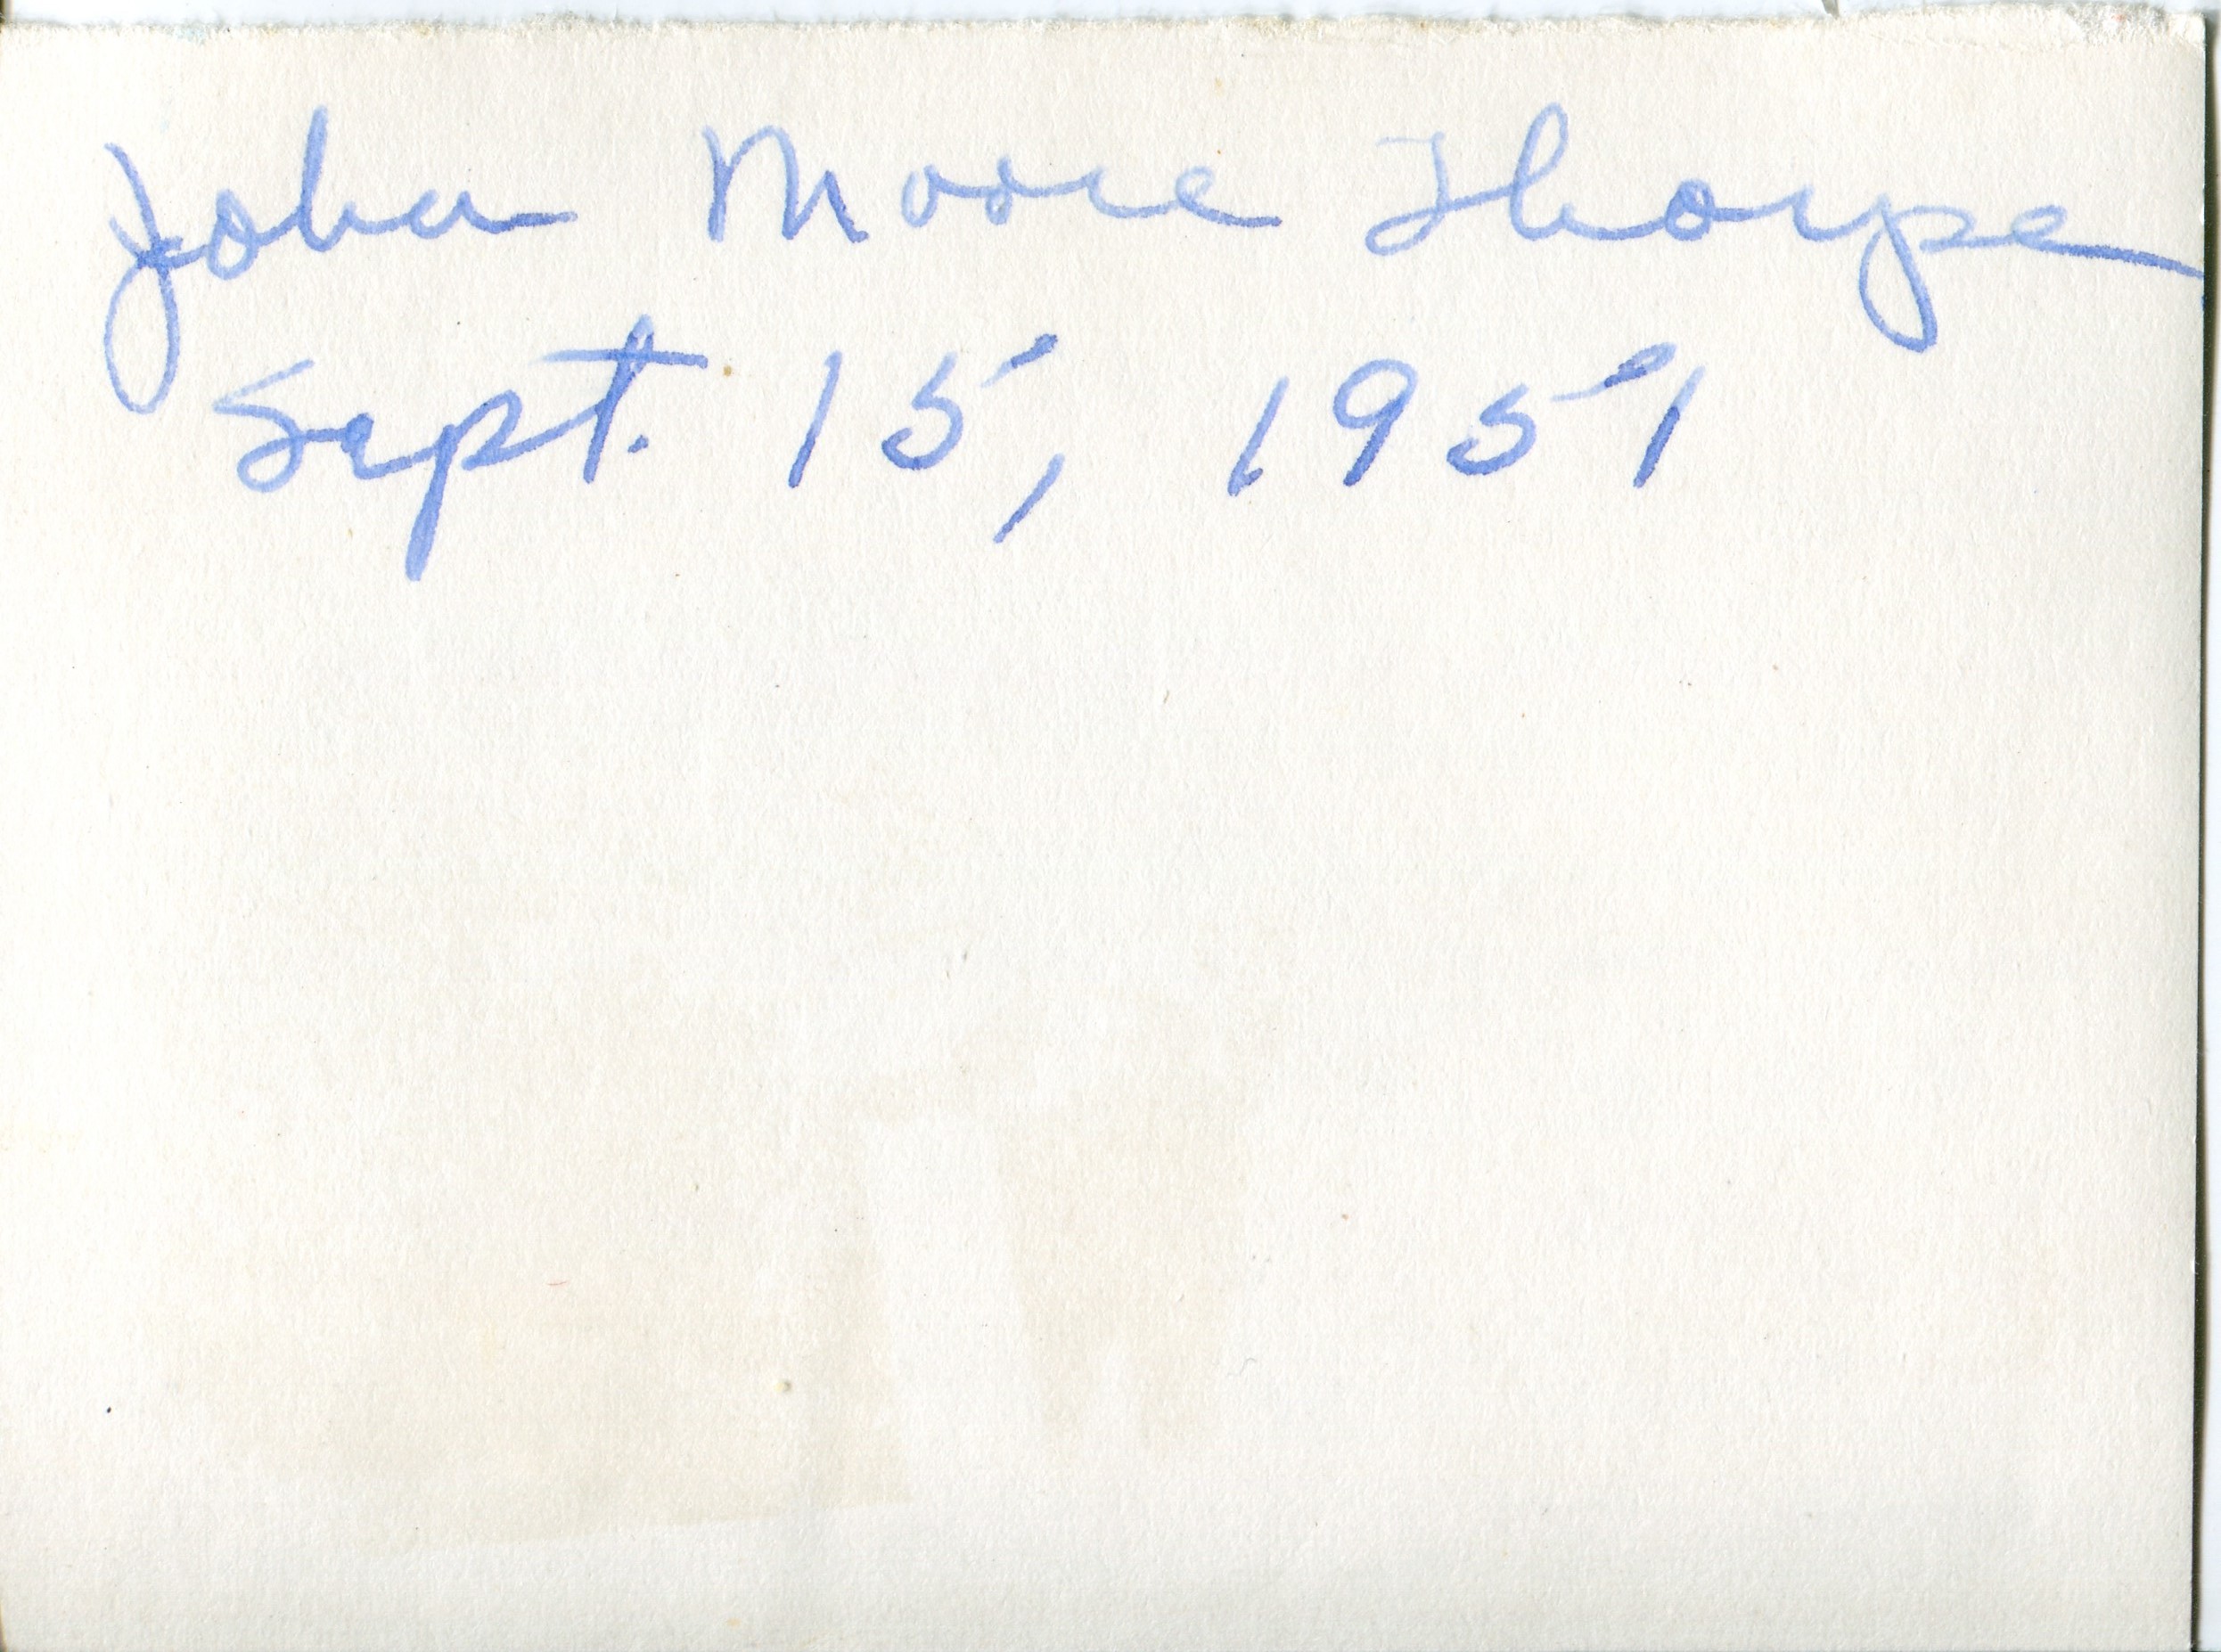 John Moore Thorpe
Sept. 15, 1951